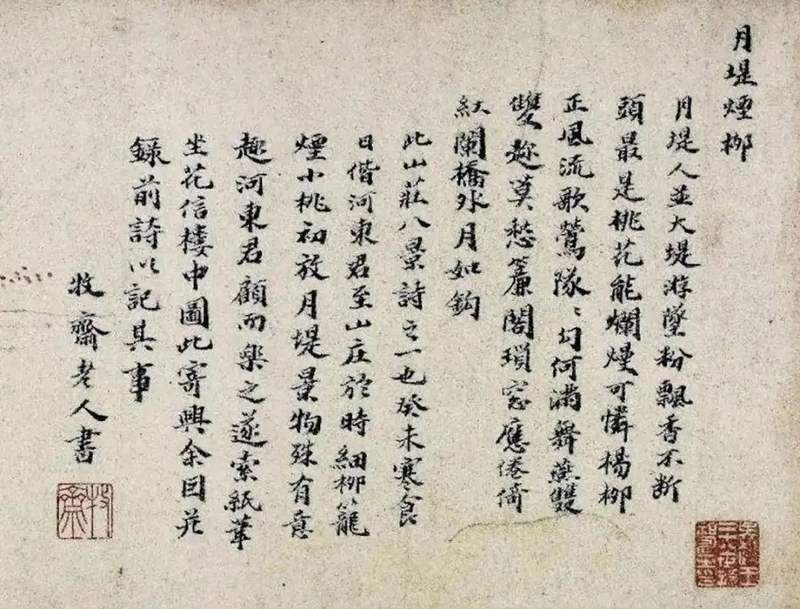 月堤煙柳
月堤人並大堤游墜粉飄香不斷
頭最是桃花能爛熳可憐楊柳
正風流歌鶯隊〻勾何滿舞燕雙
雙趁莫愁簾閣瑣窓應倦倚
紅闌橋外月如鈎
此山莊八景詩之一也癸未寒食
日偕河東君至山庄於時細柳籠
煙小桃初放月堤景物殊有意
趣河東君顧而樂之遂索紙筆
坐花信樓中圖此寄興余因並
錄前詩以記其事
牧齋老人書
牧齋